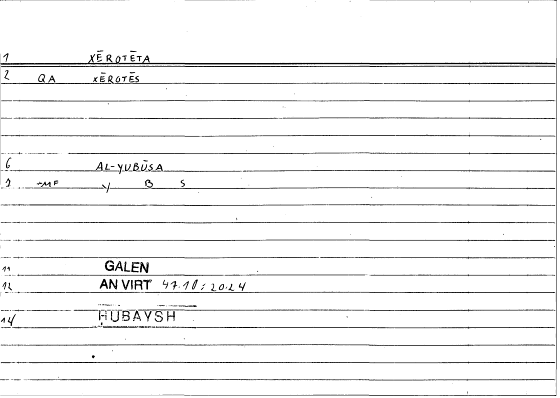 1 XĒROTĒTA
2 QA XĒROTĒS
6 AL-YUBŪSA
7 -MF Y B S
11 GALEN
12 AN VIRT 47.18; 20.24
14 ḤUBAYSH